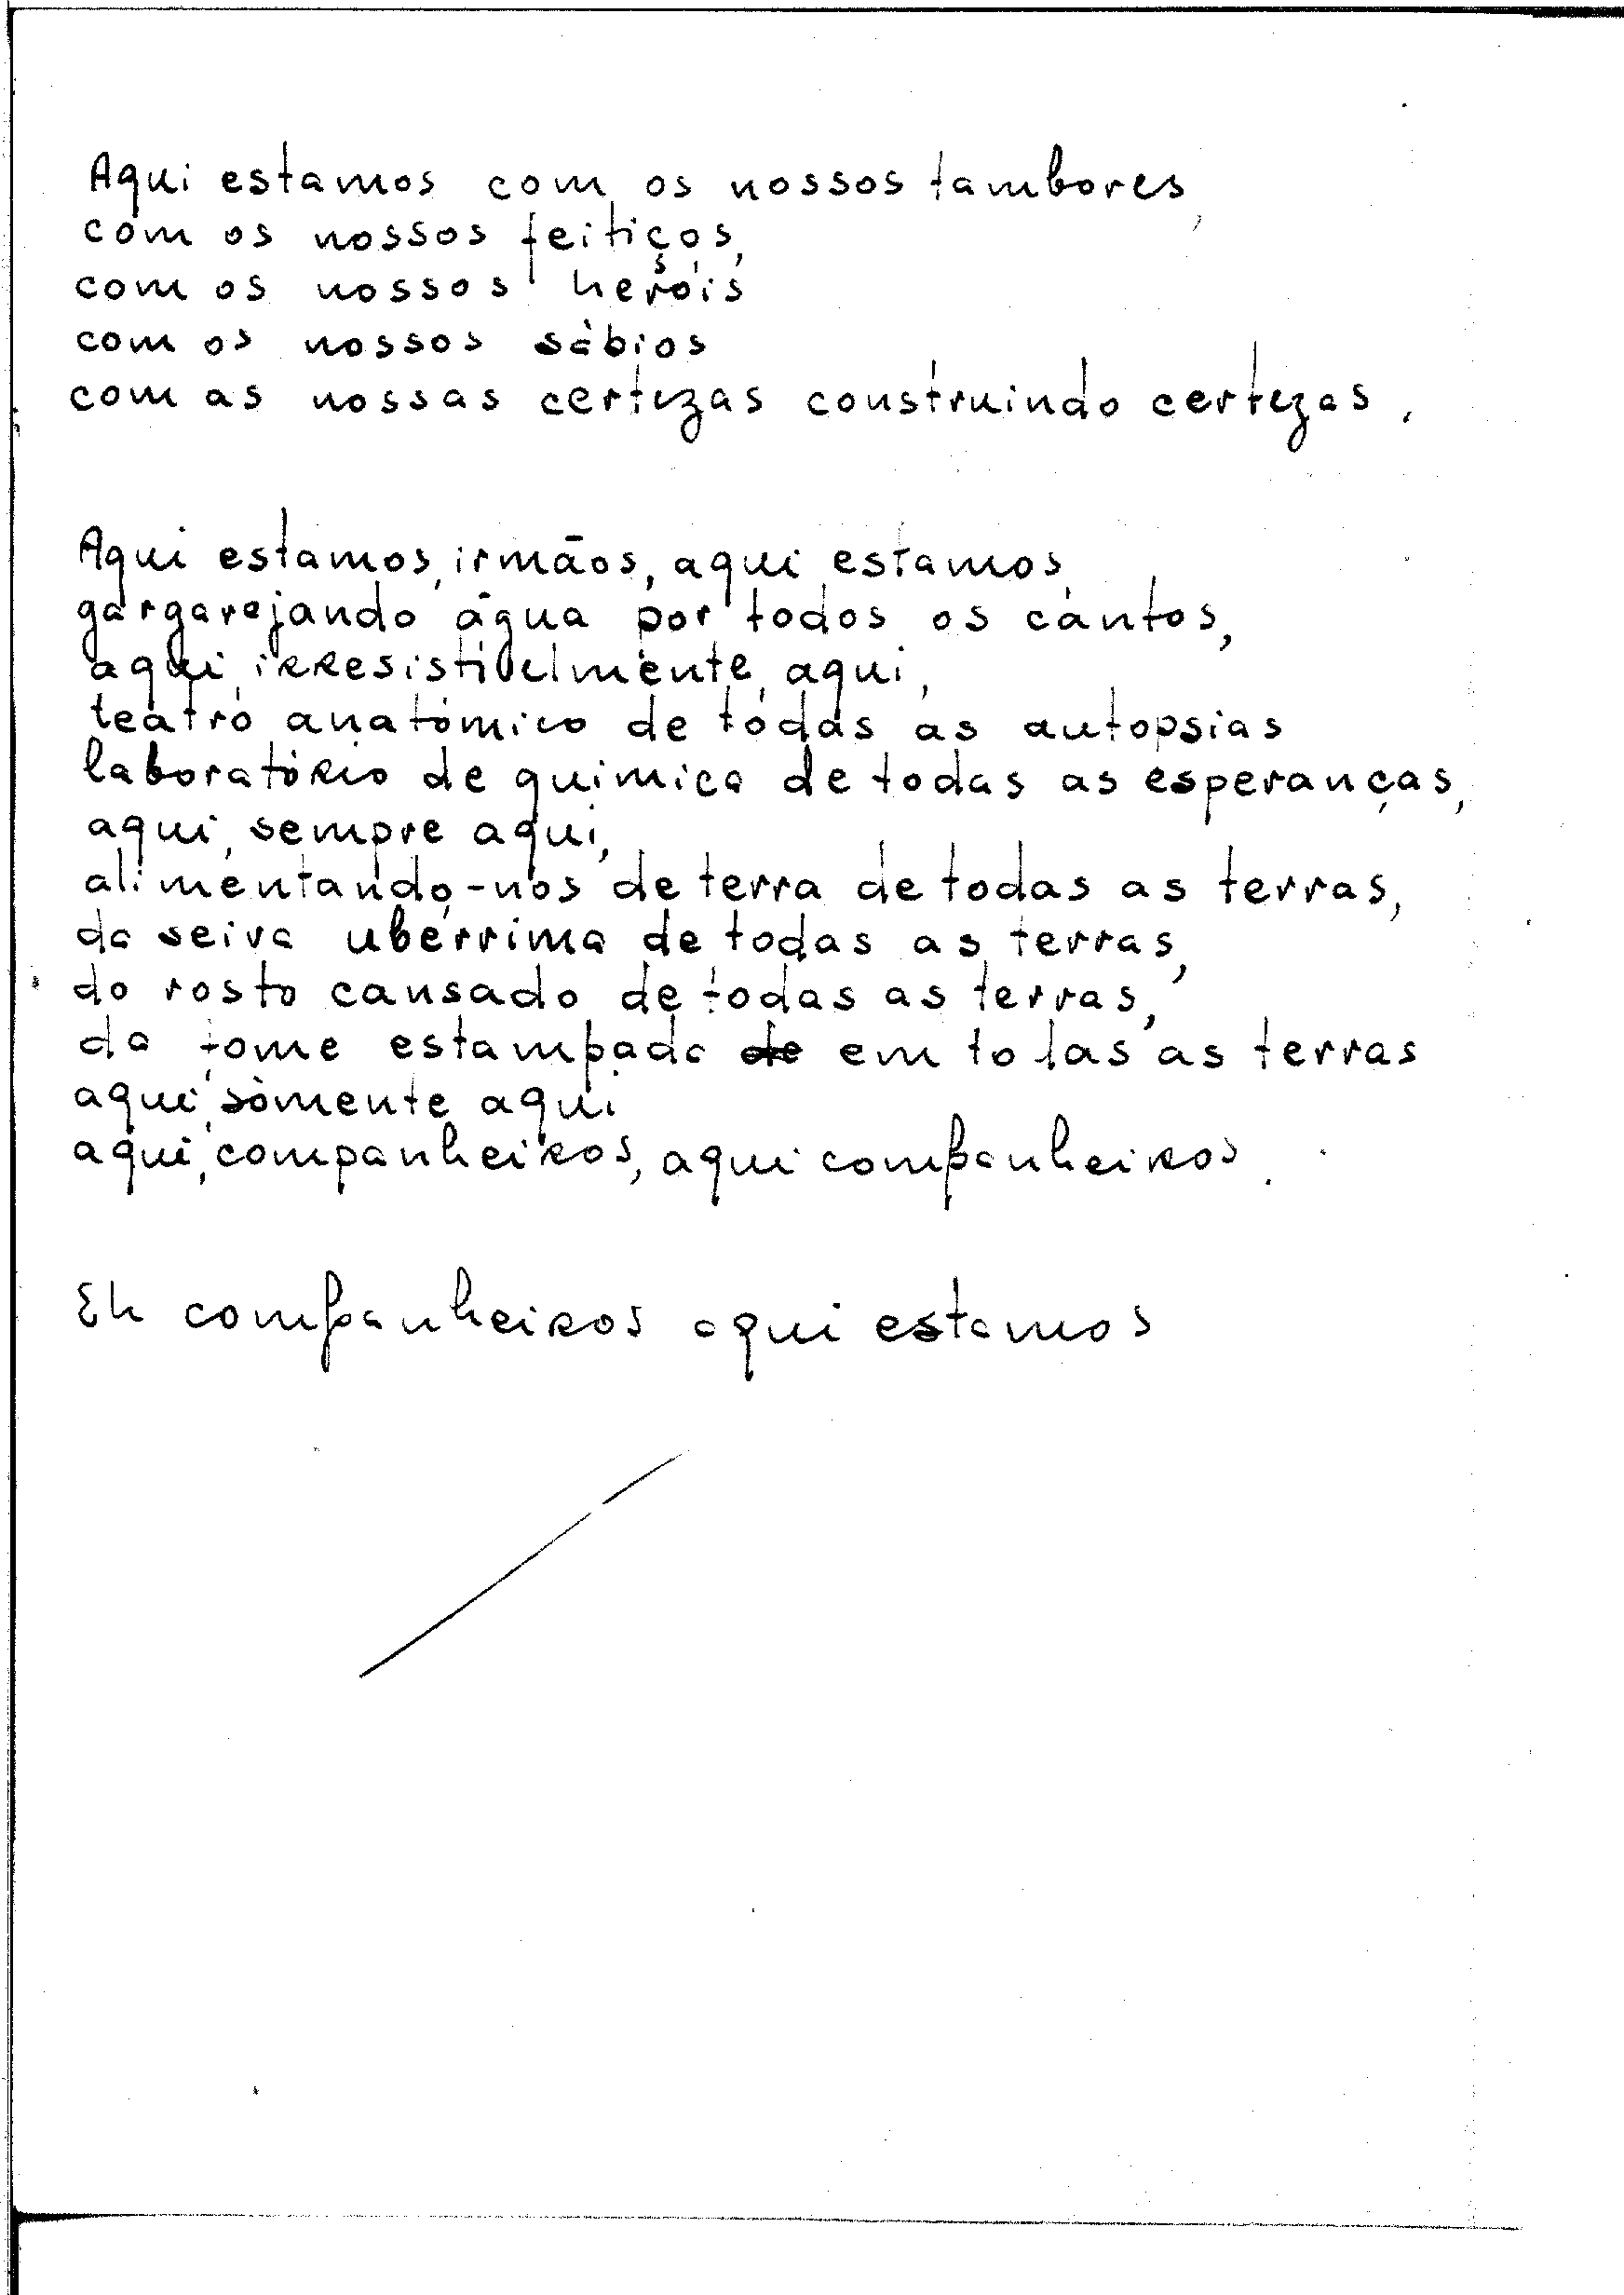 Aqui estamos com os nossos tambores,
com os nossos feitiços,
com os nossos heróis
com os nossos sábios
com as nossas certezas construindo certezas.
Aqui estamos, irmãos, aqui estamos
gargarejando água por todos os cantos,
aqui, irresistivelmente, aqui,
teatro anatómico de todas as autopsias
laboratório de quimica de todas as esperanças,
aqui, sempre aqui,
alimentando-nos de terra de todas as terras,
da seiva ubérrima de todas as terras,
do rosto cansado de todas as terras,
da fome estampada de em todas as terras
aqui, sòmente aqui
aqui, companheiros, aqui companheiros.
Eh companheiros aqui estamos